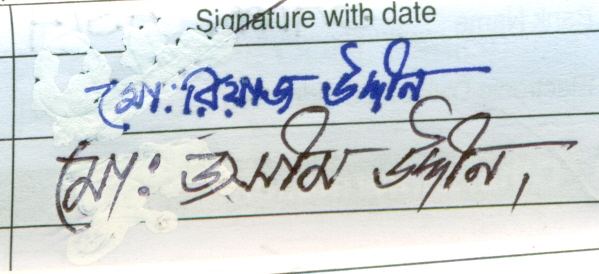 Signature with date
মো: রিয়াজ উদ্দীন
মো: জসীম উদ্দীন,